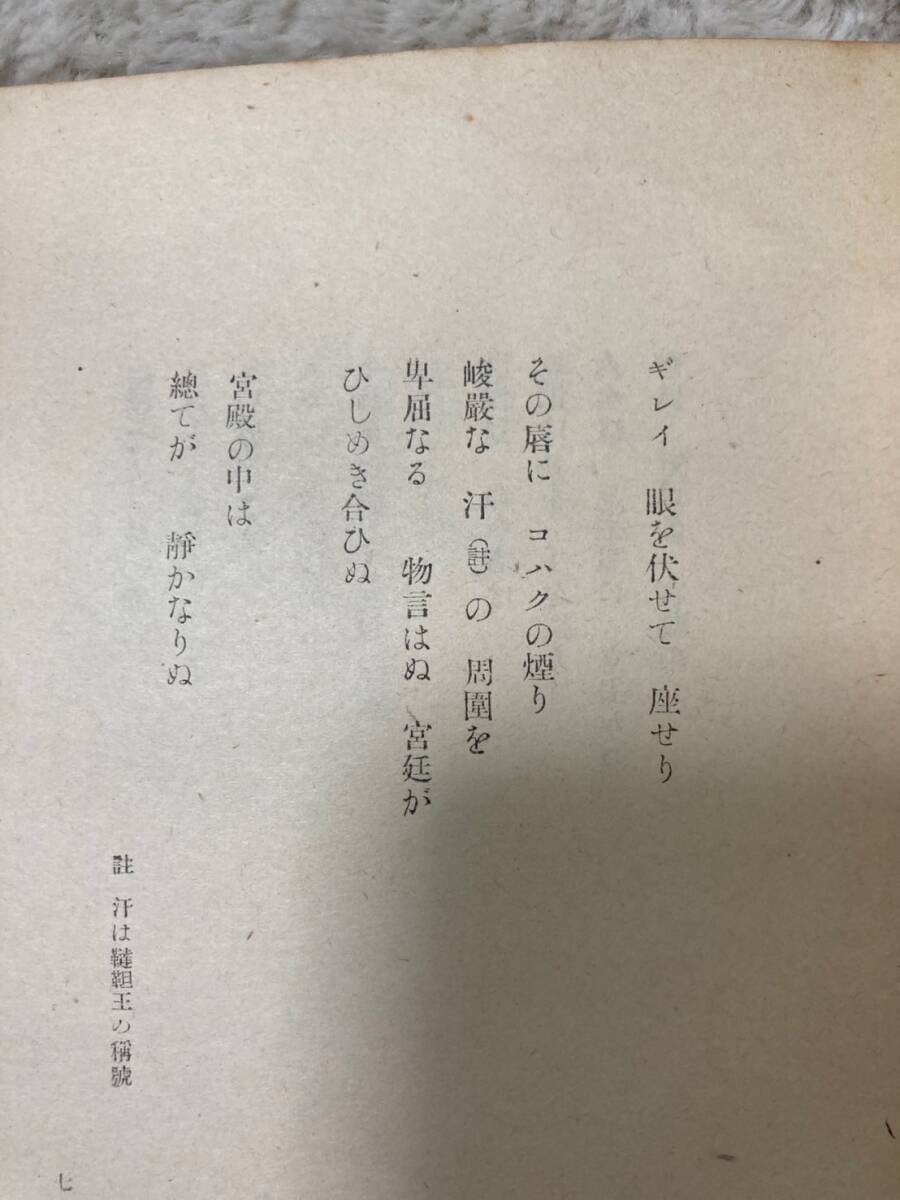 ギレイ　眼を伏せて　座せり
その唇に　コハクの煙り
峻嚴な　汗（註）の　周圍を
卑屈なる　物言はぬ　宮廷が
ひしめき合ひぬ
宮殿の中は
總てが　靜かなりぬ
註　汗は韃靼王の稱號
七